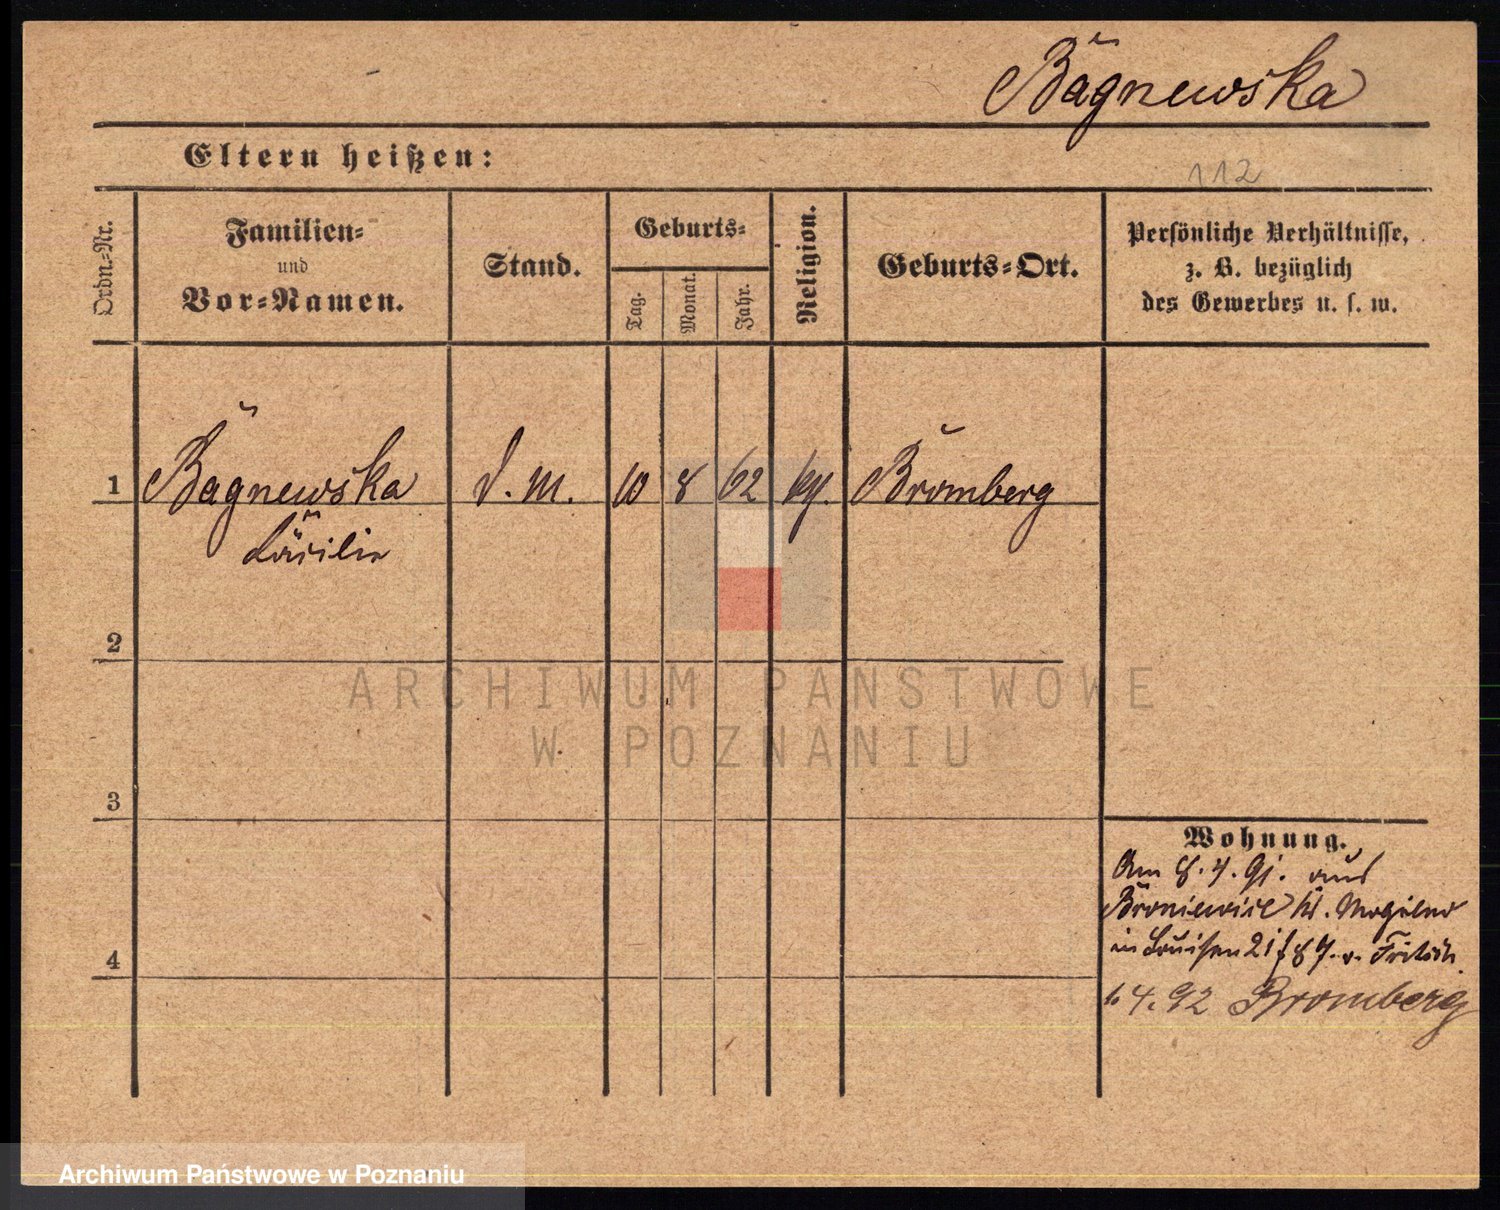 Bagnewska
Eltern heißen:
112
Ordn.-Nr.
Familien-
und
Vor-Namen.
Stand.
Geburts-
Tag.
Monat.
Jahr.
Religion.
Geburts-Ort.
Persönliche Verhältnisse,
z. B. bezüglich
des Gewerbes u. s. w.
1 Bagnewska D. M. 10 8 62 Bromberg
Cäcilie
2
3
4
Wohnung.
Am 8. 4. 91. aus
Broniewice Kr. Mogilno
in Louisen 21 b. Fritsch.
4. 92 Bromberg
ARCHIWUM PAŃSTWOWE
W POZNANIU
Archiwum Państwowe w Poznaniu